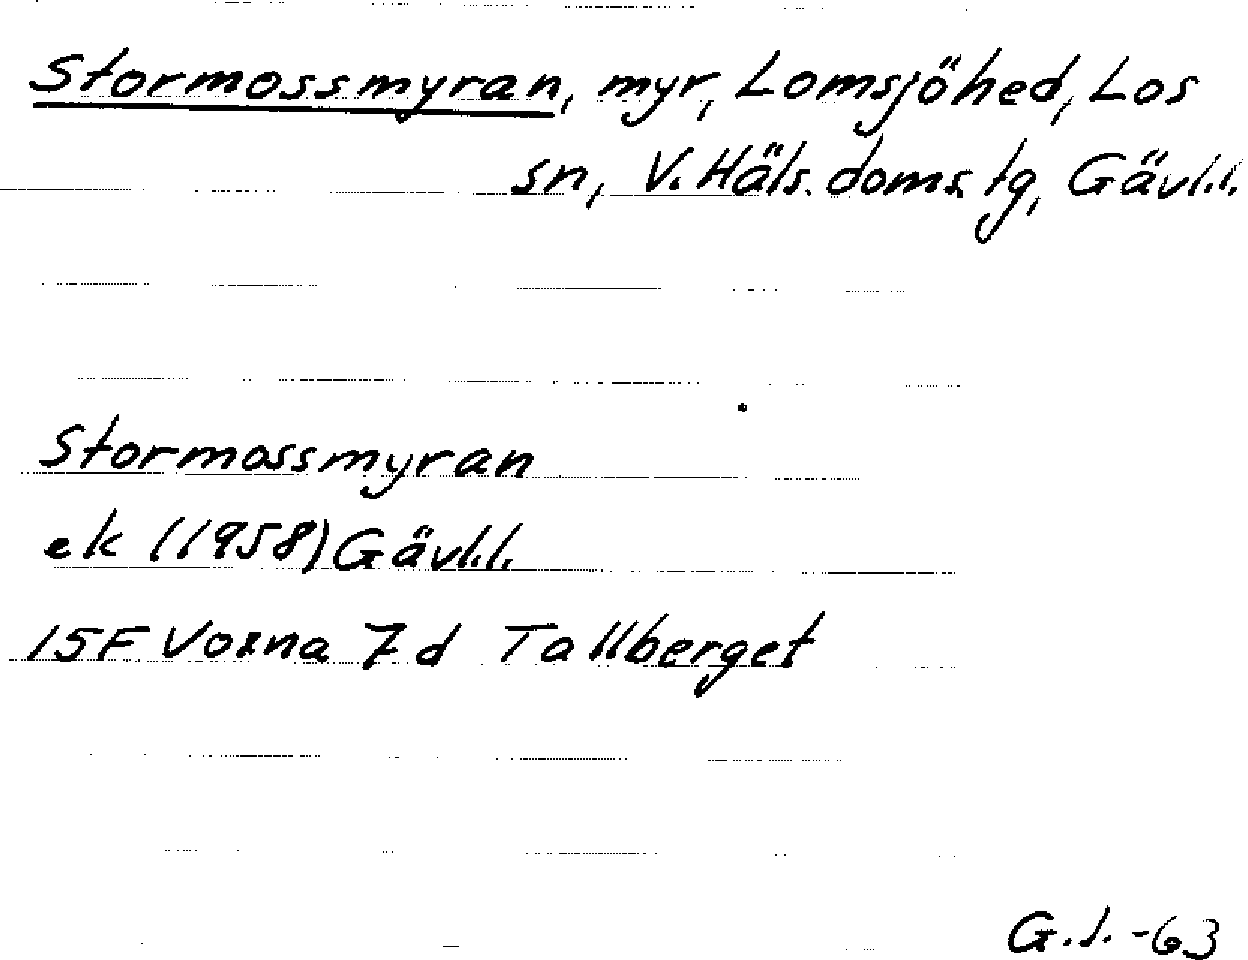 Stormossmyran, myr, Lomsjöhed, Los
sn, V. Häls. doms. tg, Gävl.l.
Stormossmyran
ek (1958) Gävl.l.
15F Voxna 7d Tallberget
G.l. -63